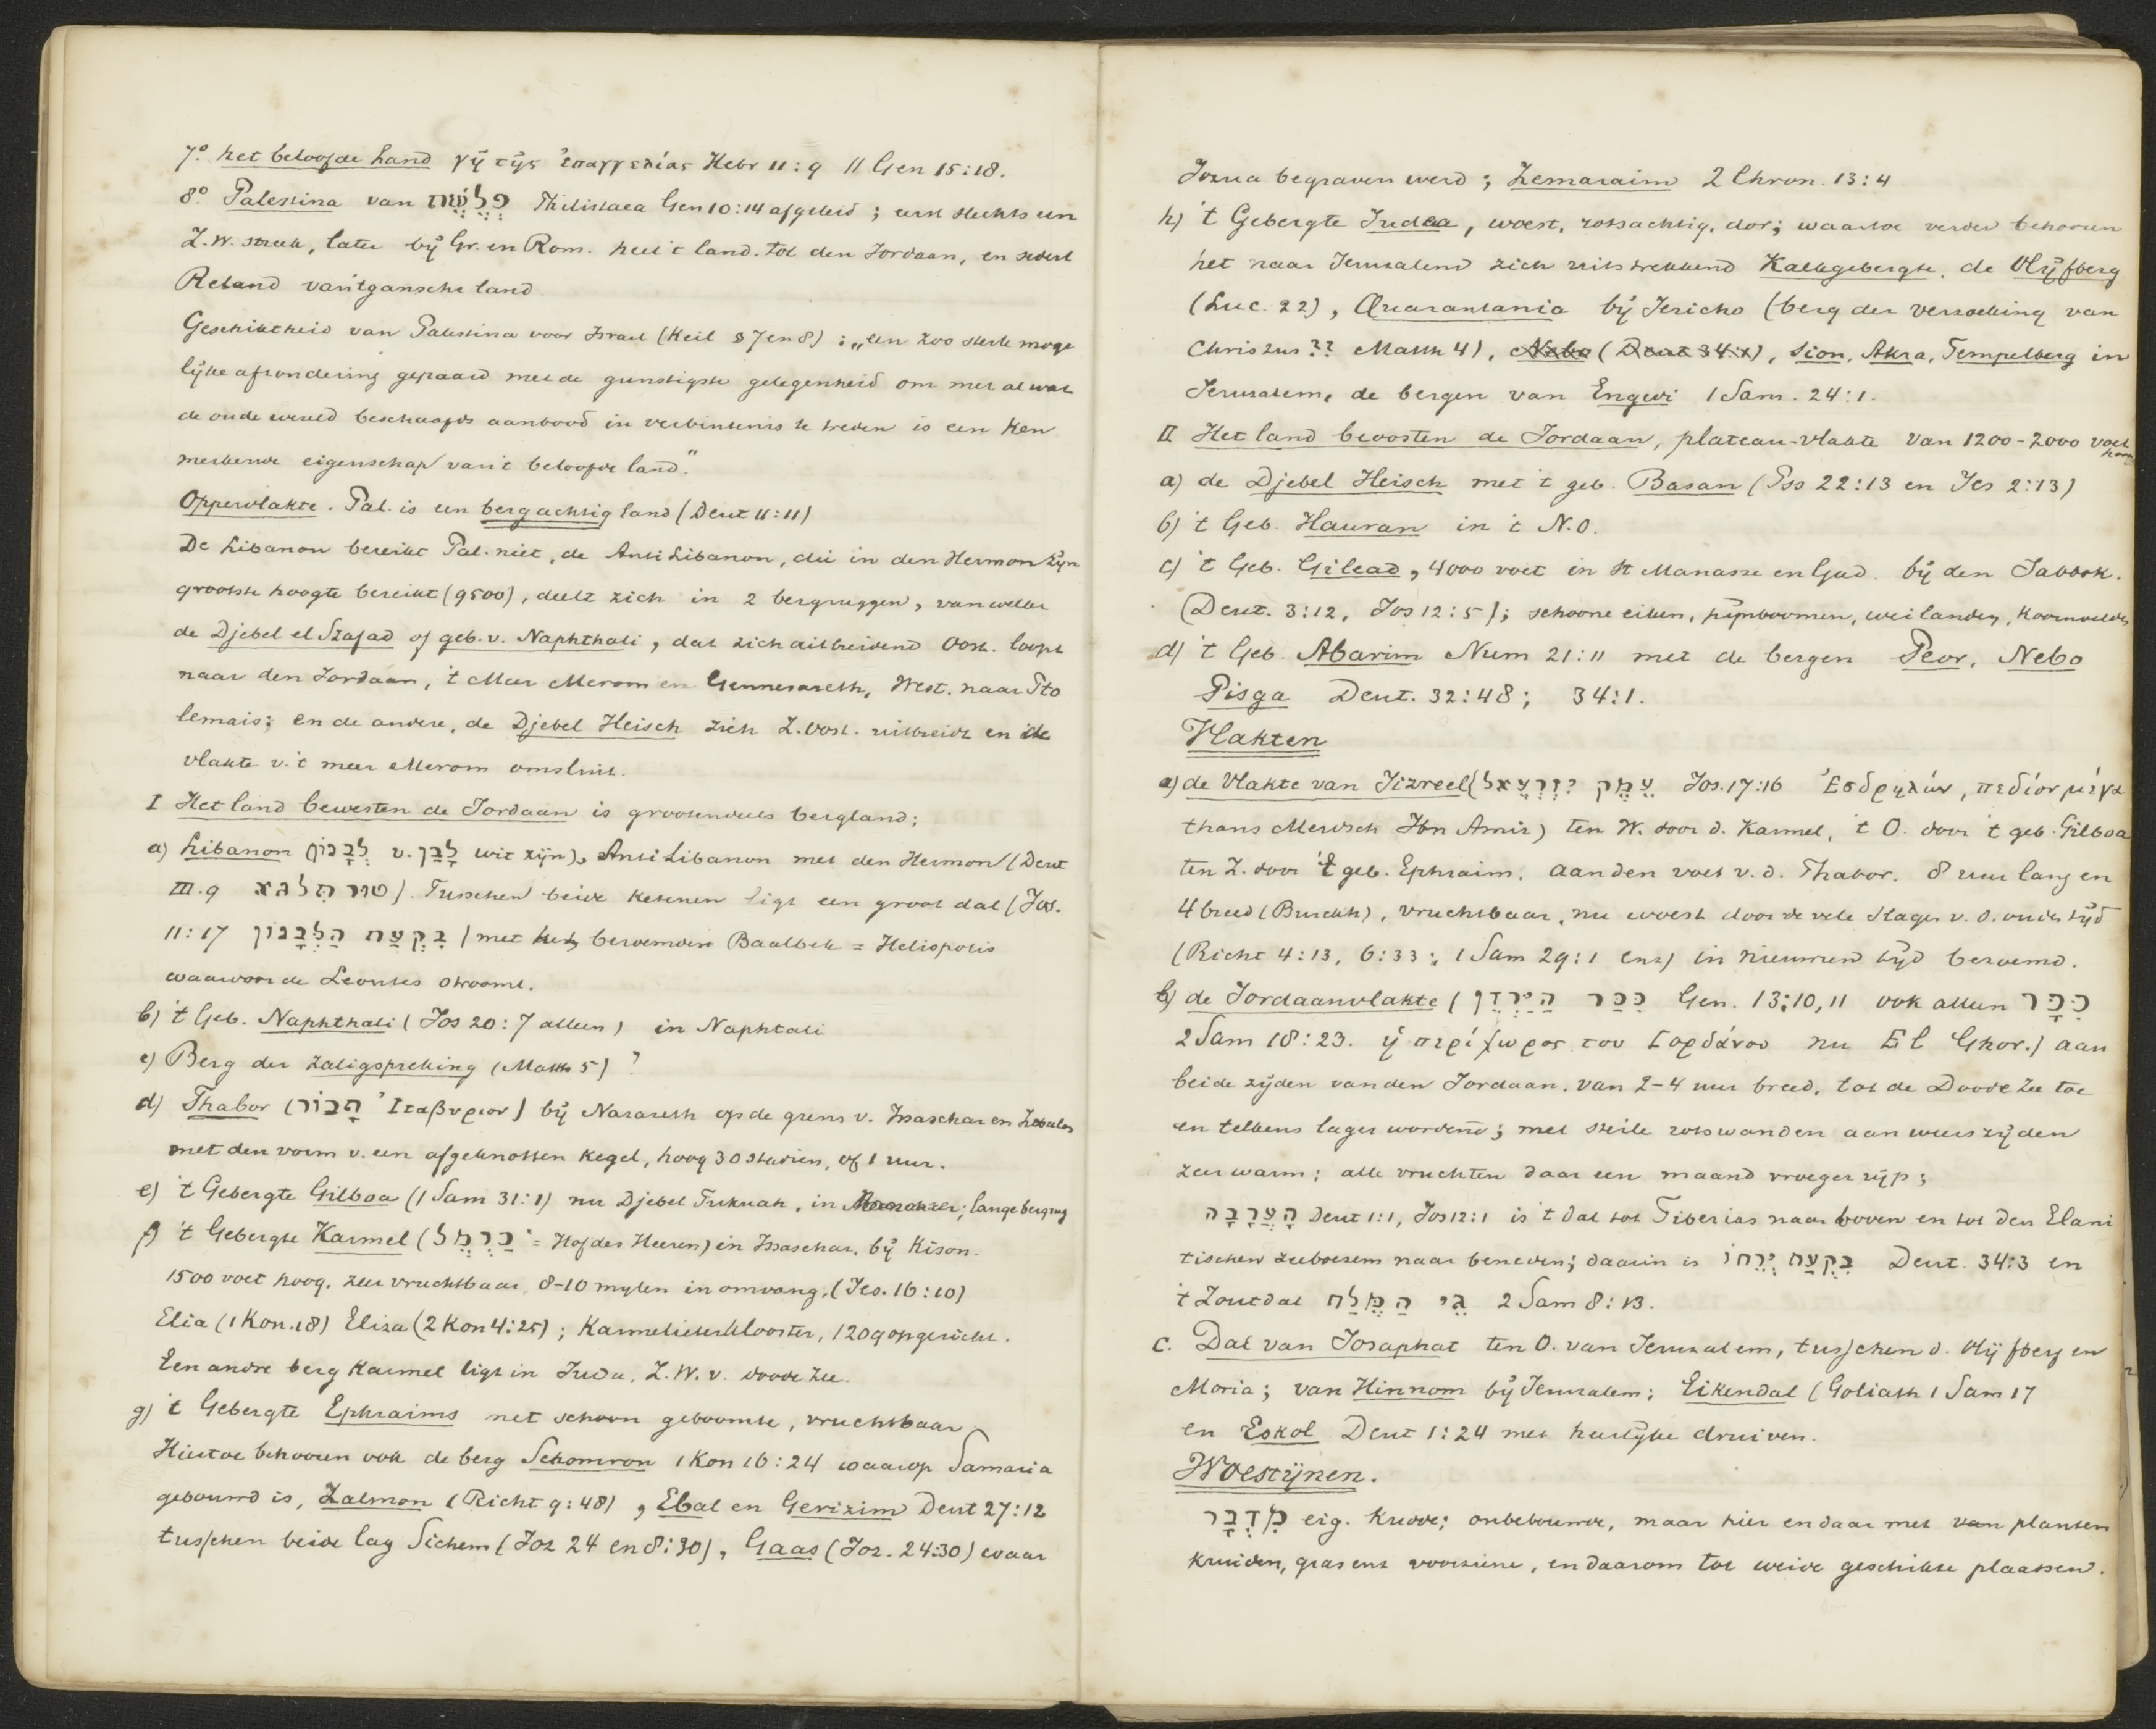 7.° het beloofde land γῆ τῆς ἐπαγγελίας Hebr 11:9 11 Gen 15:18.
8.° Palestina van פְּלֶשֶׁת Philistaea Gen 10:14 afgeleid; eerst slechts een
Z.W. streek, later bij Gr. en Rom. heel 't land. tot den Jordaan, en sedert
Reland van 't gansche land.
Geschiktheid van Palestina voor Israel (Keil § 7 en 8): „een zoo sterk moge
lijke afrondering gepaard met de gunstigste gelegenheid om met al wat
de oude wereld beschaafds aanbood in verbintenis te treden is een Ken
merkende eigenschap van 't beloofde land."
Oppervlakte. Pal. is een bergachtig land (Deut 11:11)
De Libanon bereikt Pal. niet, de Anti Libanon, die in den Hermon zijn
grootste hoogte bereikt (9500), deelt zich in 2 bergruggen, van welke
de Djebel el Szafad of geb. v. Naphthali, dat zich uitbreidend Oost. loopt
naar den Jordaan, 't Meer Merom en Gennesareth, West. naar Pto
lemais; en de andere, de Djebel Heisch zich Z. Oost. uitbreidt en de
vlakte v. 't meer Merom omsluit.
I Het land bewesten de Jordaan is grootendeels bergland;
a) Libanon (לְבָנוֹן v. לָבַן wit zijn), Anti Libanon met den Hermon (Deut
III.9 טור תלגא). Tusschen beide ketenen ligt een groot dal (Jos.
11:17 בִּקְעַת הַלְּבָנוֹן) met het beroemde Baalbek = Heliopolis
waardoor de Leontes stroomt.
b) 't Geb. Naphthali (Jos 20:7 alleen) in Naphtali
c) Berg der zaligspreking (Matth 5)?
d) Thabor (תָּבוֹר Ἰταβυριον) bij Nazareth op de grens v. Issaschar en Zebulon
met den vorm v. een afgeknotten kegel, hoog 30 stadien, of 1 uur.
e) 't Gebergte Gilboa (1 Sam 31:1) nu Djebel Fukuah, in ; lange bergrug
f) 't Gebergte Karmel (כַּרְמֶל = Hof des Heeren) in Issaschar, bij Kison.
1500 voet hoog, zeer vruchtbaar, 8-10 mylen in omvang, (Jes. 16:10)
Elia (1 Kon.18) Eliza (2 Kon 4:25); Karmelieterklooster, 1209 opgericht.
Een andre berg Karmel ligt in Juda, Z.W. v. doode Zee.
g) 't Gebergte Ephraims met schoon geboomte, vruchtbaar
Hiertoe behooren ook de berg Schomron 1 Kon 16:24 waarop Samaria
gebouwd is, Zalmon (Richt 9:48), Ebal en Gerizim Deut 27:12
tusschen beide lag Sichem (Joz 24 en 8:30), Gaas (Joz. 24:30) waar
Jozua begraven werd; Zemaraim 2 Chron. 13:4
h) 't Gebergte Judea, woest, rotsachtig, dor; waartoe verder behooren
het naar Jerusalem zich uitstrekkend Kalkgebergte, de Olijfberg
(Luc. 22), Quarantania bij Jericho (berg der verzoeking van
Christus?? Matth 4), Nebo (Deut 34:1), Sion, Akra, Tempelberg in
Jerusalem, de bergen van Engedi 1 Sam. 24:1.
II Het land beoosten de Jordaan, plateau-vlakte van 1200-2000 voet
hoog
a) de Djebel Heisch met 't geb. Basan (Pss 22:13 en Jes 2:13)
b) 't Geb. Hauran in 't N.O.
c) 't Geb. Gilead, 4000 voet in St Manasse en Gad. bij den Jabbok.
(Deut. 3:12, Jos 12:5); schoone eiken, pijnboomen, weilanden, Koornvelden
d) 't Geb. Abarim Num 21:11 met de bergen Peor, Nebo
Pisga Deut. 32:48; 34:1.
Vlakten
a) de Vlakte van Jizreel (עֵמֶק יִזְרְעֶאל Jos. 17:16 Ἐσδρηλών, πεδίον μέγα
thans Merdsch Ibn Amir) ten W. door d. Karmel, 't O. door 't geb. Gilboa
ten Z. door 't geb. Ephraim, aan den voet v. d. Thabor. 8 uur lang en
4 breed (Burckh), vruchtbaar, nu woest door de vele slagen v. d. ouden tijd
(Richt 4:13, 6:33; 1 Sam 29:1 enz) in nieuweren tijd beroemd.
b) de Jordaanvlakte (כִּכַּר הַיַּרְדֵּן Gen. 13:10,11 ook alleen כִּכָּר
2 Sam 18:23. ἡ περίχωρος του Ιορδάνου nu El Ghor.) aan
beide zijden van den Jordaan, van 2-4 uur breed, tot de Doode Zee toe
en telkens lager wordend; met steile rotswanden aan weerszijden
zeer warm; alle vruchten daar een maand vroeger rijp;
הָעֲרָבָה Deut 1:1, Jos 12:1 is 't dal tot Tiberias naar boven en tot den Elani
tischen zeeboezem naar beneden; daarin is בִּקְעַת יְרֵחוֹ Deut. 34:3 en
't Zoutdal גֵּי הַמֶּלַח 2 Sam 8:13.
c. Dal van Josaphat ten O. van Jerusalem, tusschen d. Olijfberg en
Moria; van Hinnom bij Jerusalem; Eikendal (Goliath 1 Sam 17
en Eskol Deut 1:24 met heerlijke druiven.
Woestijnen.
מִדְבָּר eig. Kudde; onbebouwde, maar hier en daar met van planten
kruiden, gras enz voorziene, en daarom tot weide geschikte plaatsen.